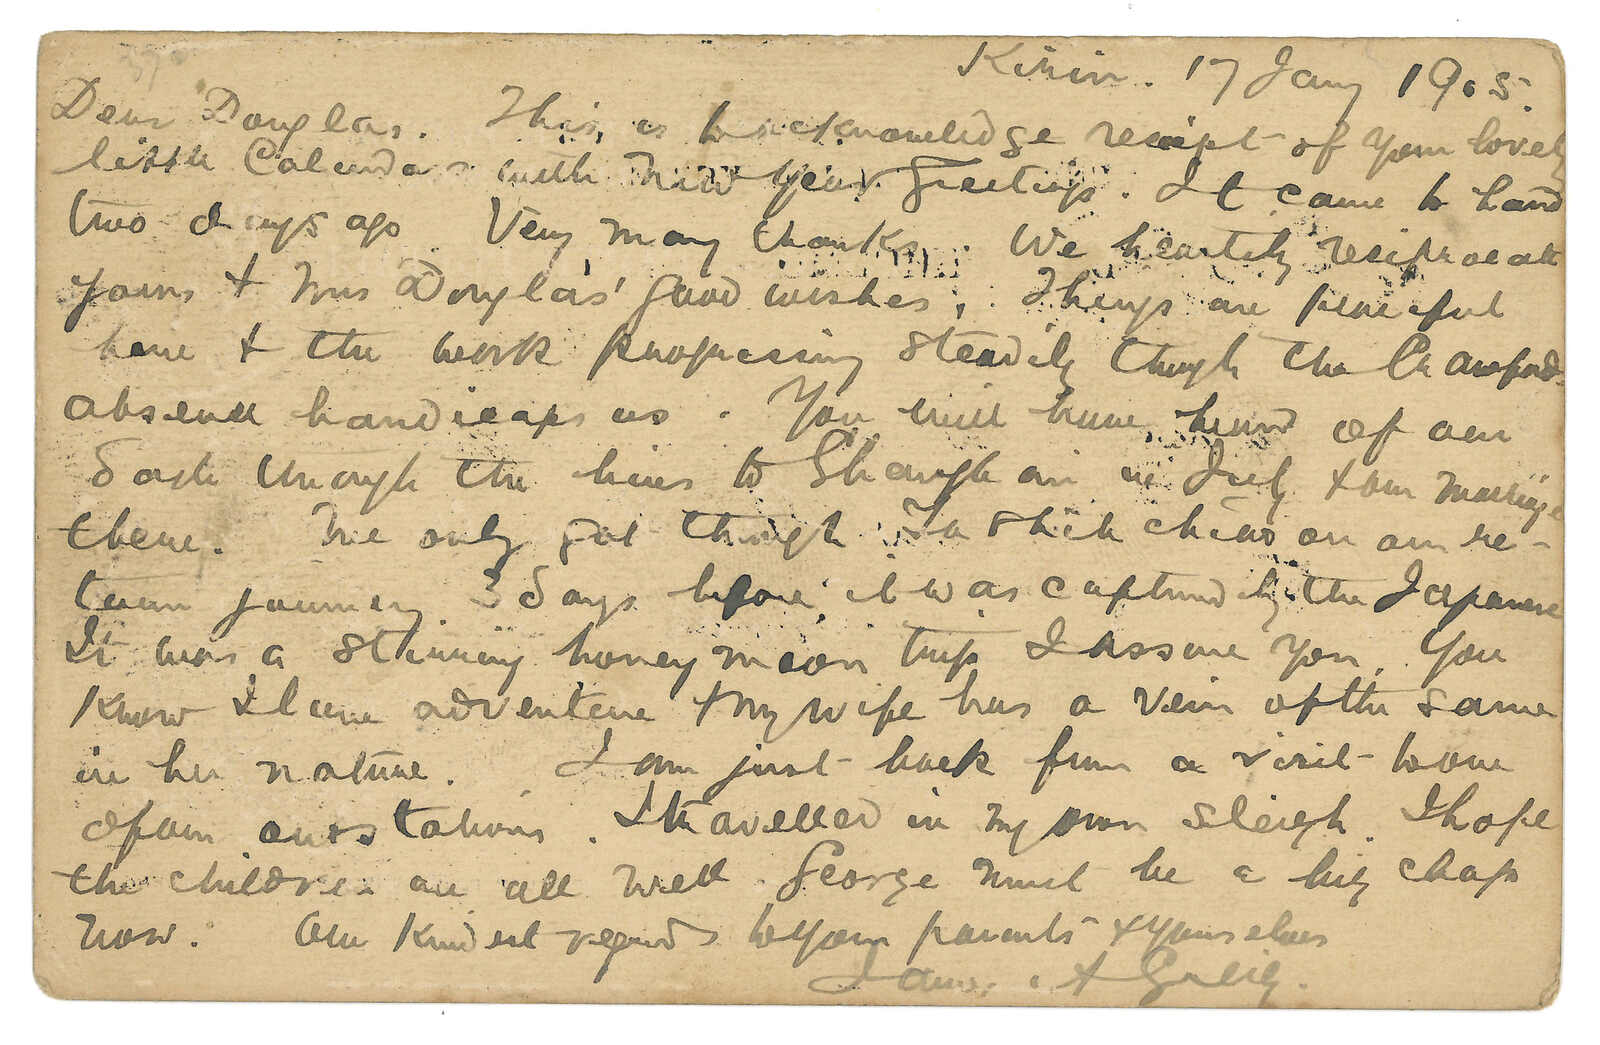 390
Kirin. 17 Jany 1905.
Dear Douglas. This is to acknowledge receipt of your lovely
little Calendar with New Year Greetings. It came to hand
two days ago. Very many thanks. We heartily reciprocate
yours & Mrs Douglas' good wishes. Things are peaceful
here & the work progressing steadily though the Crawfords
absence handicaps us. You will have heard of our
dash through the lines to Shanghai in July & our marriage
there. We only got through Ta shih chiao on our re-
turn journey 3 days before it was captured by the Japanese
It was a stirring honeymoon trip I assure you. You
know I love adventure & my wife has a vein of the same
in her nature. I am just back from a visit to one
of our outstations. I travelled in my own sleigh. I hope
the children are all well. George must be a big chap
now. Our kindest regards to your parents & yourselves
James A Greig.